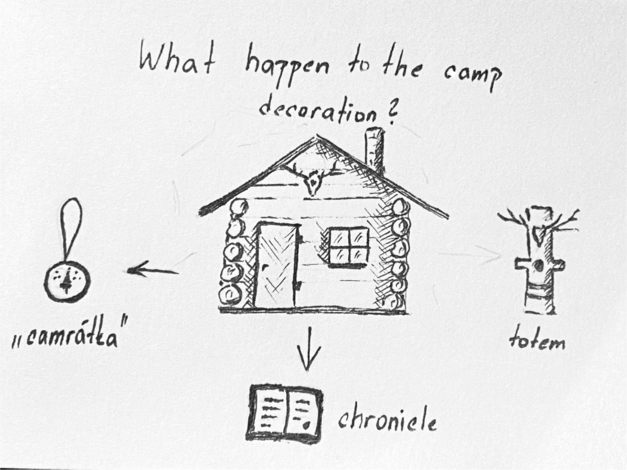 What happen to the camp
decoration?
„camrátka"
totem
chronicle